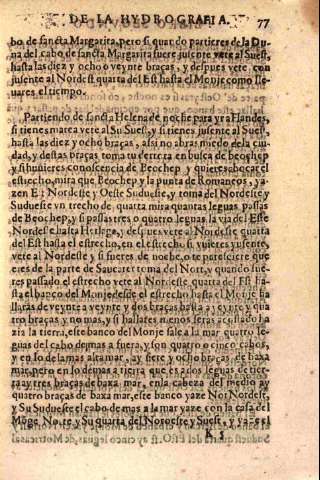 DE LA HYDROGRAFIA. 77
bo de sancta Margarita, pero si quando partieres de la Du
na del cabo de sancta Margarita fuere jusente vete al Suest,
hasta las diez y ocho o veynte braças, y despues vete con
jusente al Nordest quarta del Est hasta el Monje como lle
uares el tiempo.
Partiendo de sancta Helena de noche para yr a Flandes,
si tienes marea vete al Su Suest, y si tienes jusente al Suest,
hasta las diez y ocho braças, assi no abras miedo de la ciu
dad, y destas braças toma tu derrera en busca de beochep
y si huuieres conoscencia de Beochep, y quieres abocar el
estrecho, mira que Beochep y la punta de Romaneos, ya
zen El Nordeste y Oeste Sudueste, y toma del Nordeste y
Sudueste vn trecho de quarta mira quantas leguas passas
de Beochep, y si passas tres o quatro leguas la via del Este
Nordest hasta Horlaga, y despues vete al Nordeste quarta
del Est hasta el estrecho, en el estrecho si vuieres jusente
vete al Nordeste y si fueres de noche, o te paresciere que
eres de la parte de Saucater toma del Nort, y quando fue-
res passado el estrecho vete al Nordeste quarta del Est ha
sta el banco del Monje desde el estrecho hasta el Monje ha
llaras de veynte a veynte y dos braças hasta a y quatro
tro braças y no mas, y si hallares menos seras llegado ha
zia la tierra, este banco del Monje sale a la mar quatro le-
guas del cabo de mas a fuera, y son quatro o cinco cabos,
y en lo de la mas alta mar, ay siete y ocho braças, de baxa
mar, pero en lo de mas a tierra que es a dos leguas de tier
ra ay tres braças de baxa mar, en la cabeza del medio ay
quatro braças de baxa mar, este banco yaze Nor Nordest,
y Su Sudueste el cabo de mas a la mar yaze con la casa del
Moge Norte y Su quarta del Noroeste y Suest, y yaze el